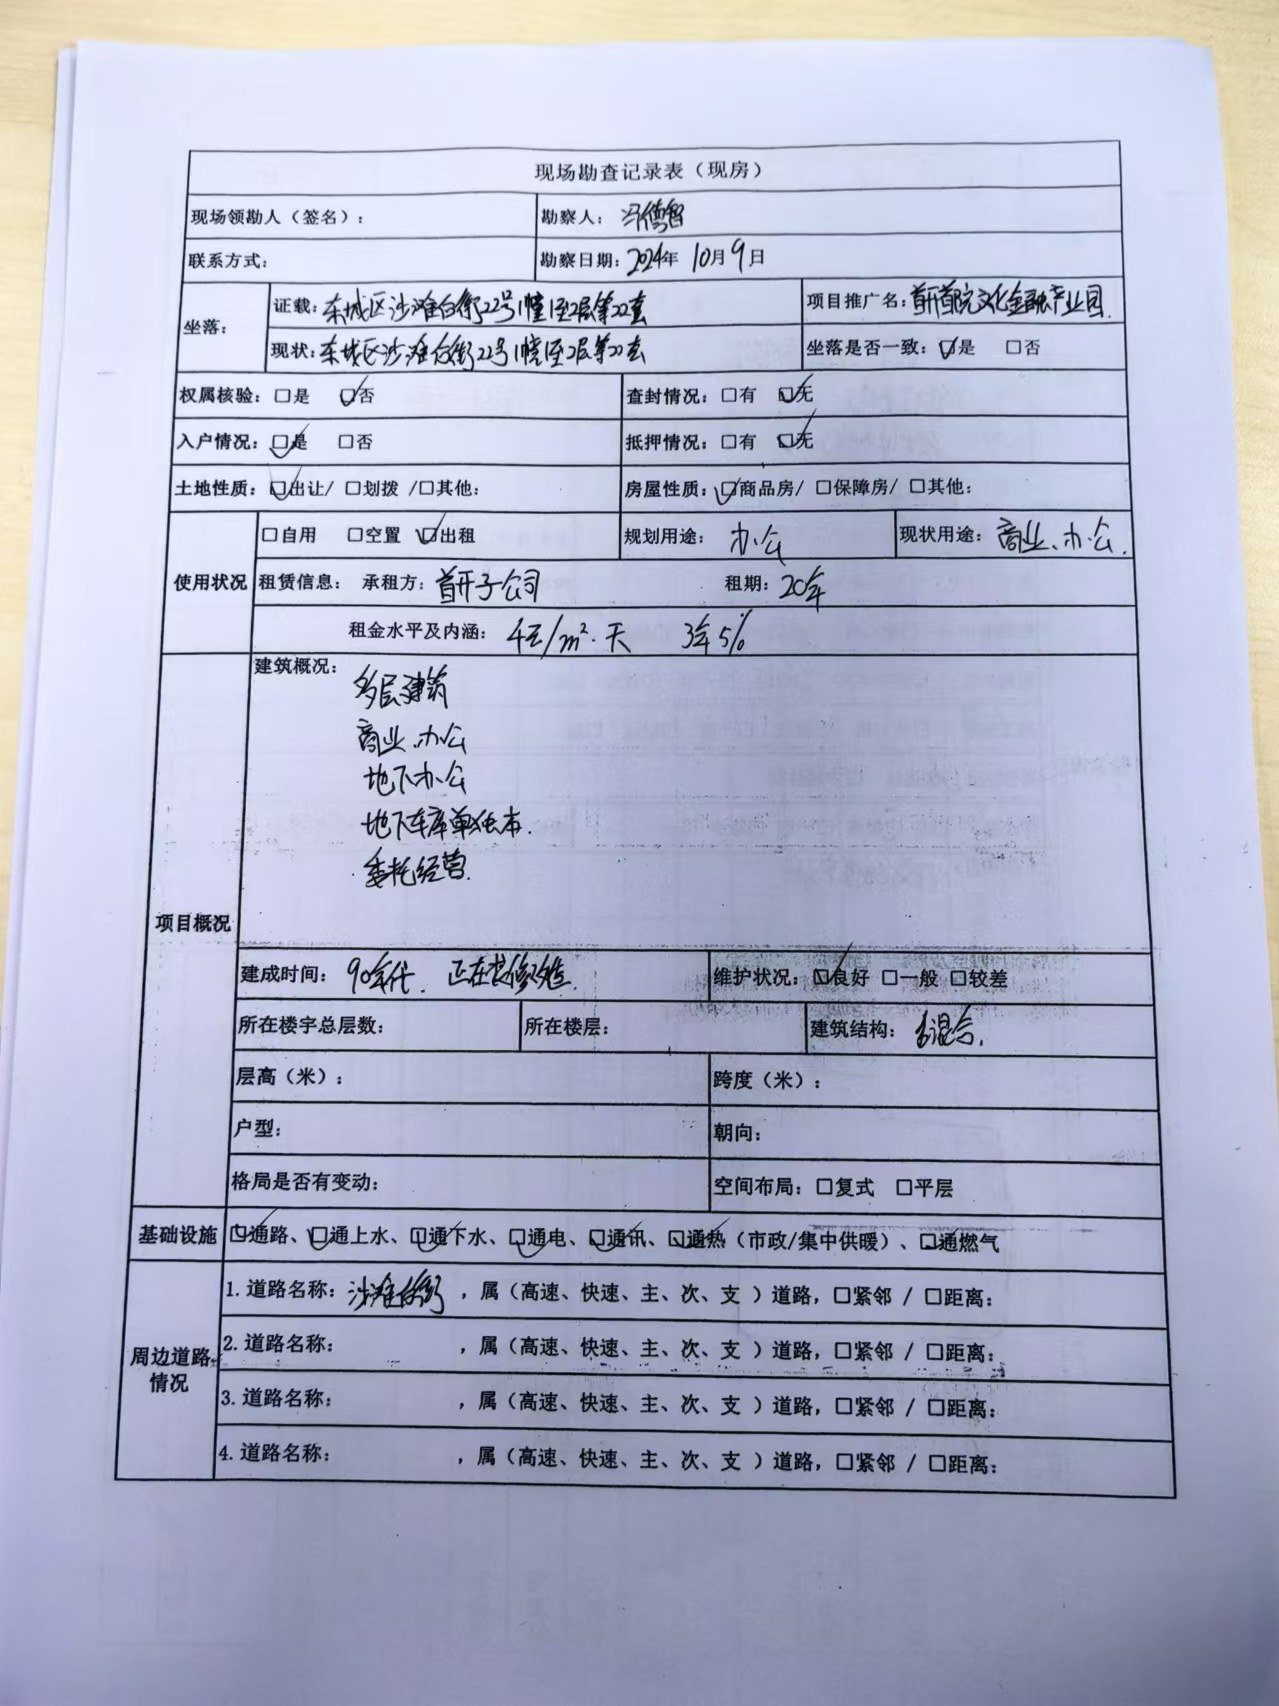 现场勘查记录表（现房）
现场领勘人（签名）： 勘察人：冯德智
联系方式： 勘察日期：2024年10月9日
坐落： 证载：东城区沙滩后街22号1幢1至2层第22套 项目推广名：首开首院文化金融产业园.
现状：东城区沙滩后街22号1幢1至2层第22套 坐落是否一致：☑是 □否
权属核验：□是 ☑否 查封情况：□有 ☑无
入户情况：☑是 □否 抵押情况：□有 ☑无
土地性质：☑出让/ □划拨 /□其他： 房屋性质：☑商品房/ □保障房/ □其他：
使用状况 □自用 □空置 ☑出租 规划用途：办公 现状用途：商业、办公.
租赁信息： 承租方：首开子公司 租期：20年
租金水平及内涵：4元/m²·天 3年5%
项目概况 建筑概况：
多层建筑
商业、办公
地下办公
地下车库单独本.
委托经营.
建成时间：90年代. 正在装修改造. 维护状况：☑良好 □一般 □较差
所在楼宇总层数： 所在楼层： 建筑结构：混合.
层高（米）： 跨度（米）：
户型： 朝向：
格局是否有变动： 空间布局：□复式 □平层
基础设施 ☑通路、☑通上水、☑通下水、☑通电、☑通讯、☑通热（市政/集中供暖）、□通燃气
周边道路情况 1. 道路名称：沙滩后街 ，属（高速、快速、主、次、支 ）道路，□紧邻 / □距离：
2. 道路名称： ，属（高速、快速、主、次、支 ）道路，□紧邻 / □距离：
3. 道路名称： ，属（高速、快速、主、次、支 ）道路，□紧邻 / □距离：
4. 道路名称： ，属（高速、快速、主、次、支 ）道路，□紧邻 / □距离：